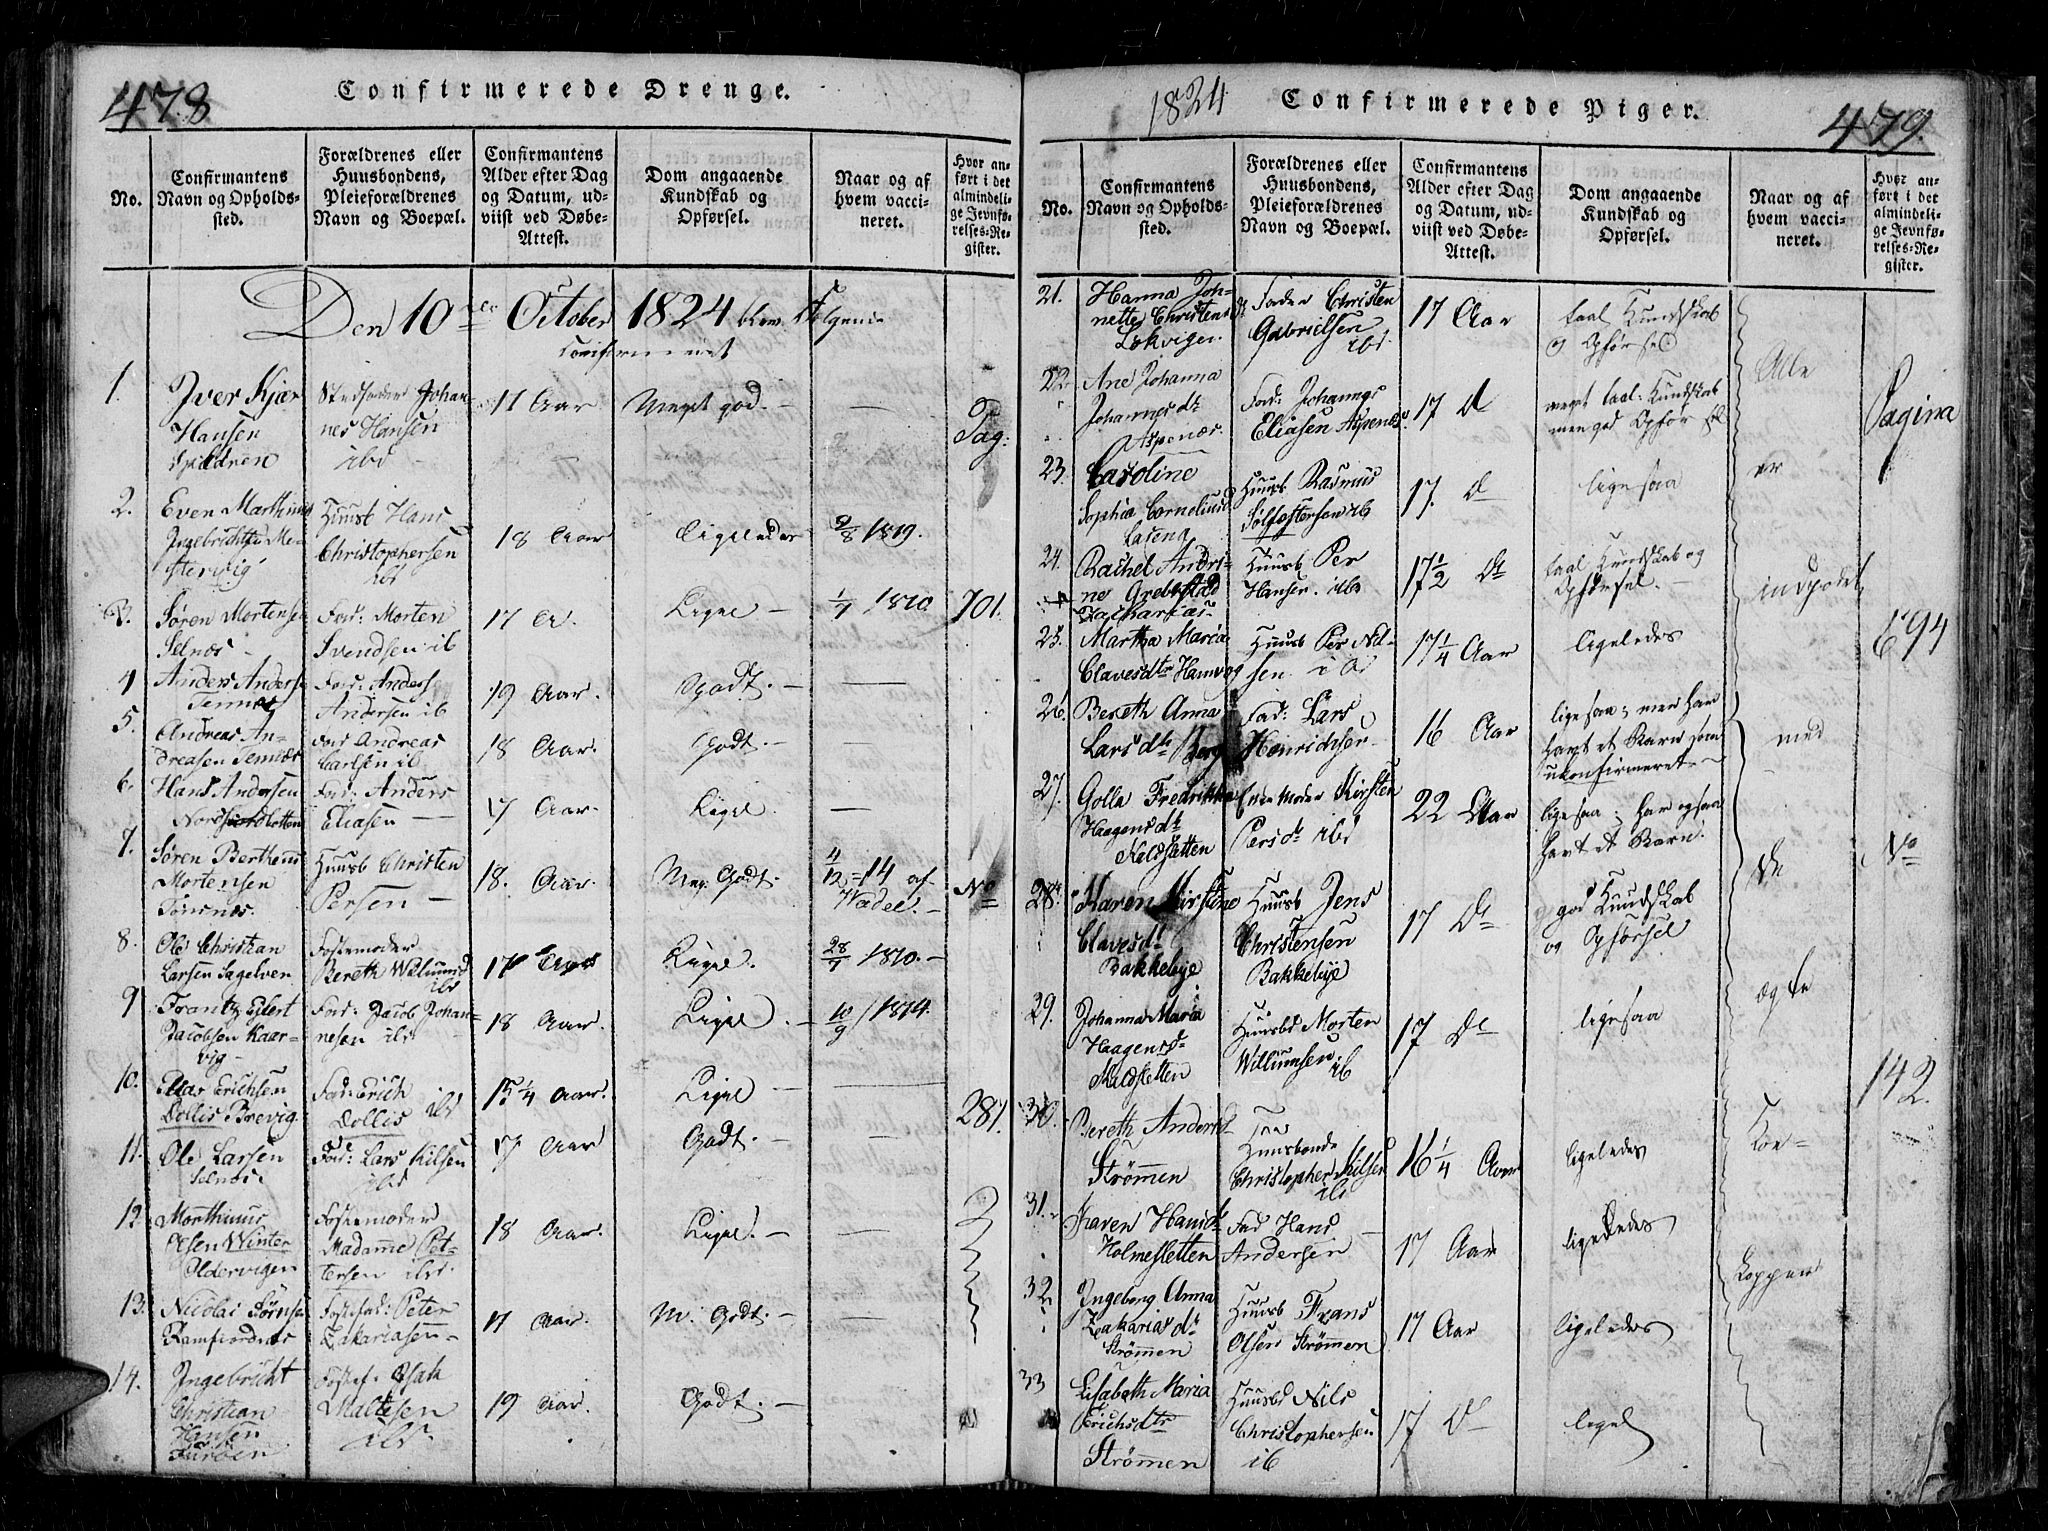 478
Confirmerede Drenge.
No.
Confirmantens
Navn og Opholds-
sted.
Forældrenes eller
Huusbondens,
Pleieforældrenes
Navn og Boepæl.
Confirmantens
Alder efter Dag
og Datum, ud-
viist ved Døbe-
Attest.
Dom angaaende
Kundskab og
Opførsel.
Naar og af
hvem vacci-
neret.
Hvor an-
ført i det
almindeli-
ge Jevnfø-
relses-Re-
gister.
Den 10 October 1824 blev Følgende
confirmeret
1.
Iver Kjær
Hansen
Spildren
Stedfader Johan-
nes Hansen
ibd
Aar
Meget god.
Pag:
2.
Even Marthinus
Ingebrichtsen Me-
stervig
Huusb Hans
Christophersen
ibd
18 Aar
Ligeledes
2/8 1819.
3.
Søren Mortensen
Selnæs
Fad: Morten
Svendsen ib
17 A.
Ligel
1/7 1810
701.
4
Anders Anders
Temnæs
Fad: Anders
Andersen ib
19 Aar.
Godt.
5.
Andreas An-
dreasen Temnæs
Fad Andreas
Carlsen ib
18 Aar.
Godt.
6.
Hans Andersen
Fad: Anders
Eliasen
17 Aar.
Ligel.
7.
Søren Bertheus
Mortensen
Tønsnæs.
Huusb Christen
Persen
18. Aar.
Meg. Godt.
4/12 = 14 af
Wadel.
No
8.
Ole Christian
Larsen Sagelven
Fostermoder
Bereth Willumsd
ibd
17 Aar
Ligel.
28/7 1810.
9
Frantz Eilert
Jacobsen Kaar-
vig
Fad: Jacob Johan-
nesen ibd
18 Aar.
Ligel.
10/9 1814.
10.
Erichsen
Dollis Brevig.
Fad: Erich
Dollis ibd
15 1/4 Aar.
Ligel
281.
11.
Ole Larsen
Selnæs.
Fad: Lars Nilsen
ibd
17 Aar
Godt.
12
Morthinus
Olsen Winter
Oldervigen
Fostermoder
Madamme Pet-
tersen ibd.
18 Aar.
Ligel.
13.
Nicolai Sørnsen
Ramfiordnæs
Fostefad: Peter
Zakariasen
17 Aar.
M. Godt.
14.
Ingebricht
Christian
Hansen
Fostef. Isak
Maltesen
ibd.
19 Aar.
Godt.
1824
Confirmerede Piger.
479.
No.
Confirmantens
Navn og Opholds-
sted.
Forældrenes eller
Huusbondens,
Pleieforældrenes
Navn og Boepæl.
Confirmantens
Alder efter Dag
og Datum, ud-
viist ved Døbe-
Attest.
Dom angaaende
Kundskab og
Opførsel.
Naar og af
hvem vacci-
neret.
Hvor an-
ført i det
almindeli-
ge Jevnfø-
relses-Re-
gister.
21.
Hanna Joh-
nette Christens
Lokvigen
Fader Christen
Gabrielsen
ibd
17 Aar
taal Kundskab
og Opførsel
Alle
Pagina
22
Ane Johanna
Johannesdtr
Aspenæs.
Fad: Johannes
Eliasen Aspenæs.
17 Do
meget taal: Kundskab
men god Opførsel
23.
Caroline
Sophia Corneliusd
Laxena
Huusb Rasmus
Sølfestersen ib
17. Do
ligesaa
er
24.
Rachel Andri-
ne Grebstad
Zacharias
Huusb Per
Hansen. ibd
17 1/2 Do
taal Kundskab og
Opførsel.
indpodet
694
25.
Martha Maria
Clavesdtr Hamvog
Huusb Per Nil-
sen ibd
17 1/4 Aar
ligeledes
26.
Bereth Anna
Larsdtr Berg
Fad: Lars
Henrichsen
16 Aar
ligesaa; men har
havt et Barn som
ukonfirmeret
med
27.
Golla Fredrikka
Haagensdtr
Mildsletten
Enke Moder Kirsten
Persdtr ibd
22 Aar
ligesaa; har ogsaa
havt et Barn.
de
No
28.
Karen Kirstine
Clavesdtr
Bakkebye
Huusb Jens
Christensen
Bakkebye
17 Do
god Kundskab
og Opførsel
29.
Johanna Maria
Haagensd
Mildsletten
Huusbd Morten
Willumsen
ib
17 Do
ligesaa
ægte
142.
30.
Bereth Andersd
Strømmen
Huusbonde
Christopher Nilsen
ibd
16 1/4 Aar
ligeledes
Koe-
31.
Maren Hansdtr
Holmesletten
Fad Hans
Andersen
17 Aar
ligeledes
32
Ingeborg Anna
Zakariasdtr
Strømmen
Huusb Frans
Olsen Strømmen
17 Aar
ligeledes
kopper
33
Lisabeth Maria
Erichsdtr
Strømmen
Huusbd Nils
Christophersen
ib
17 Do
ligel